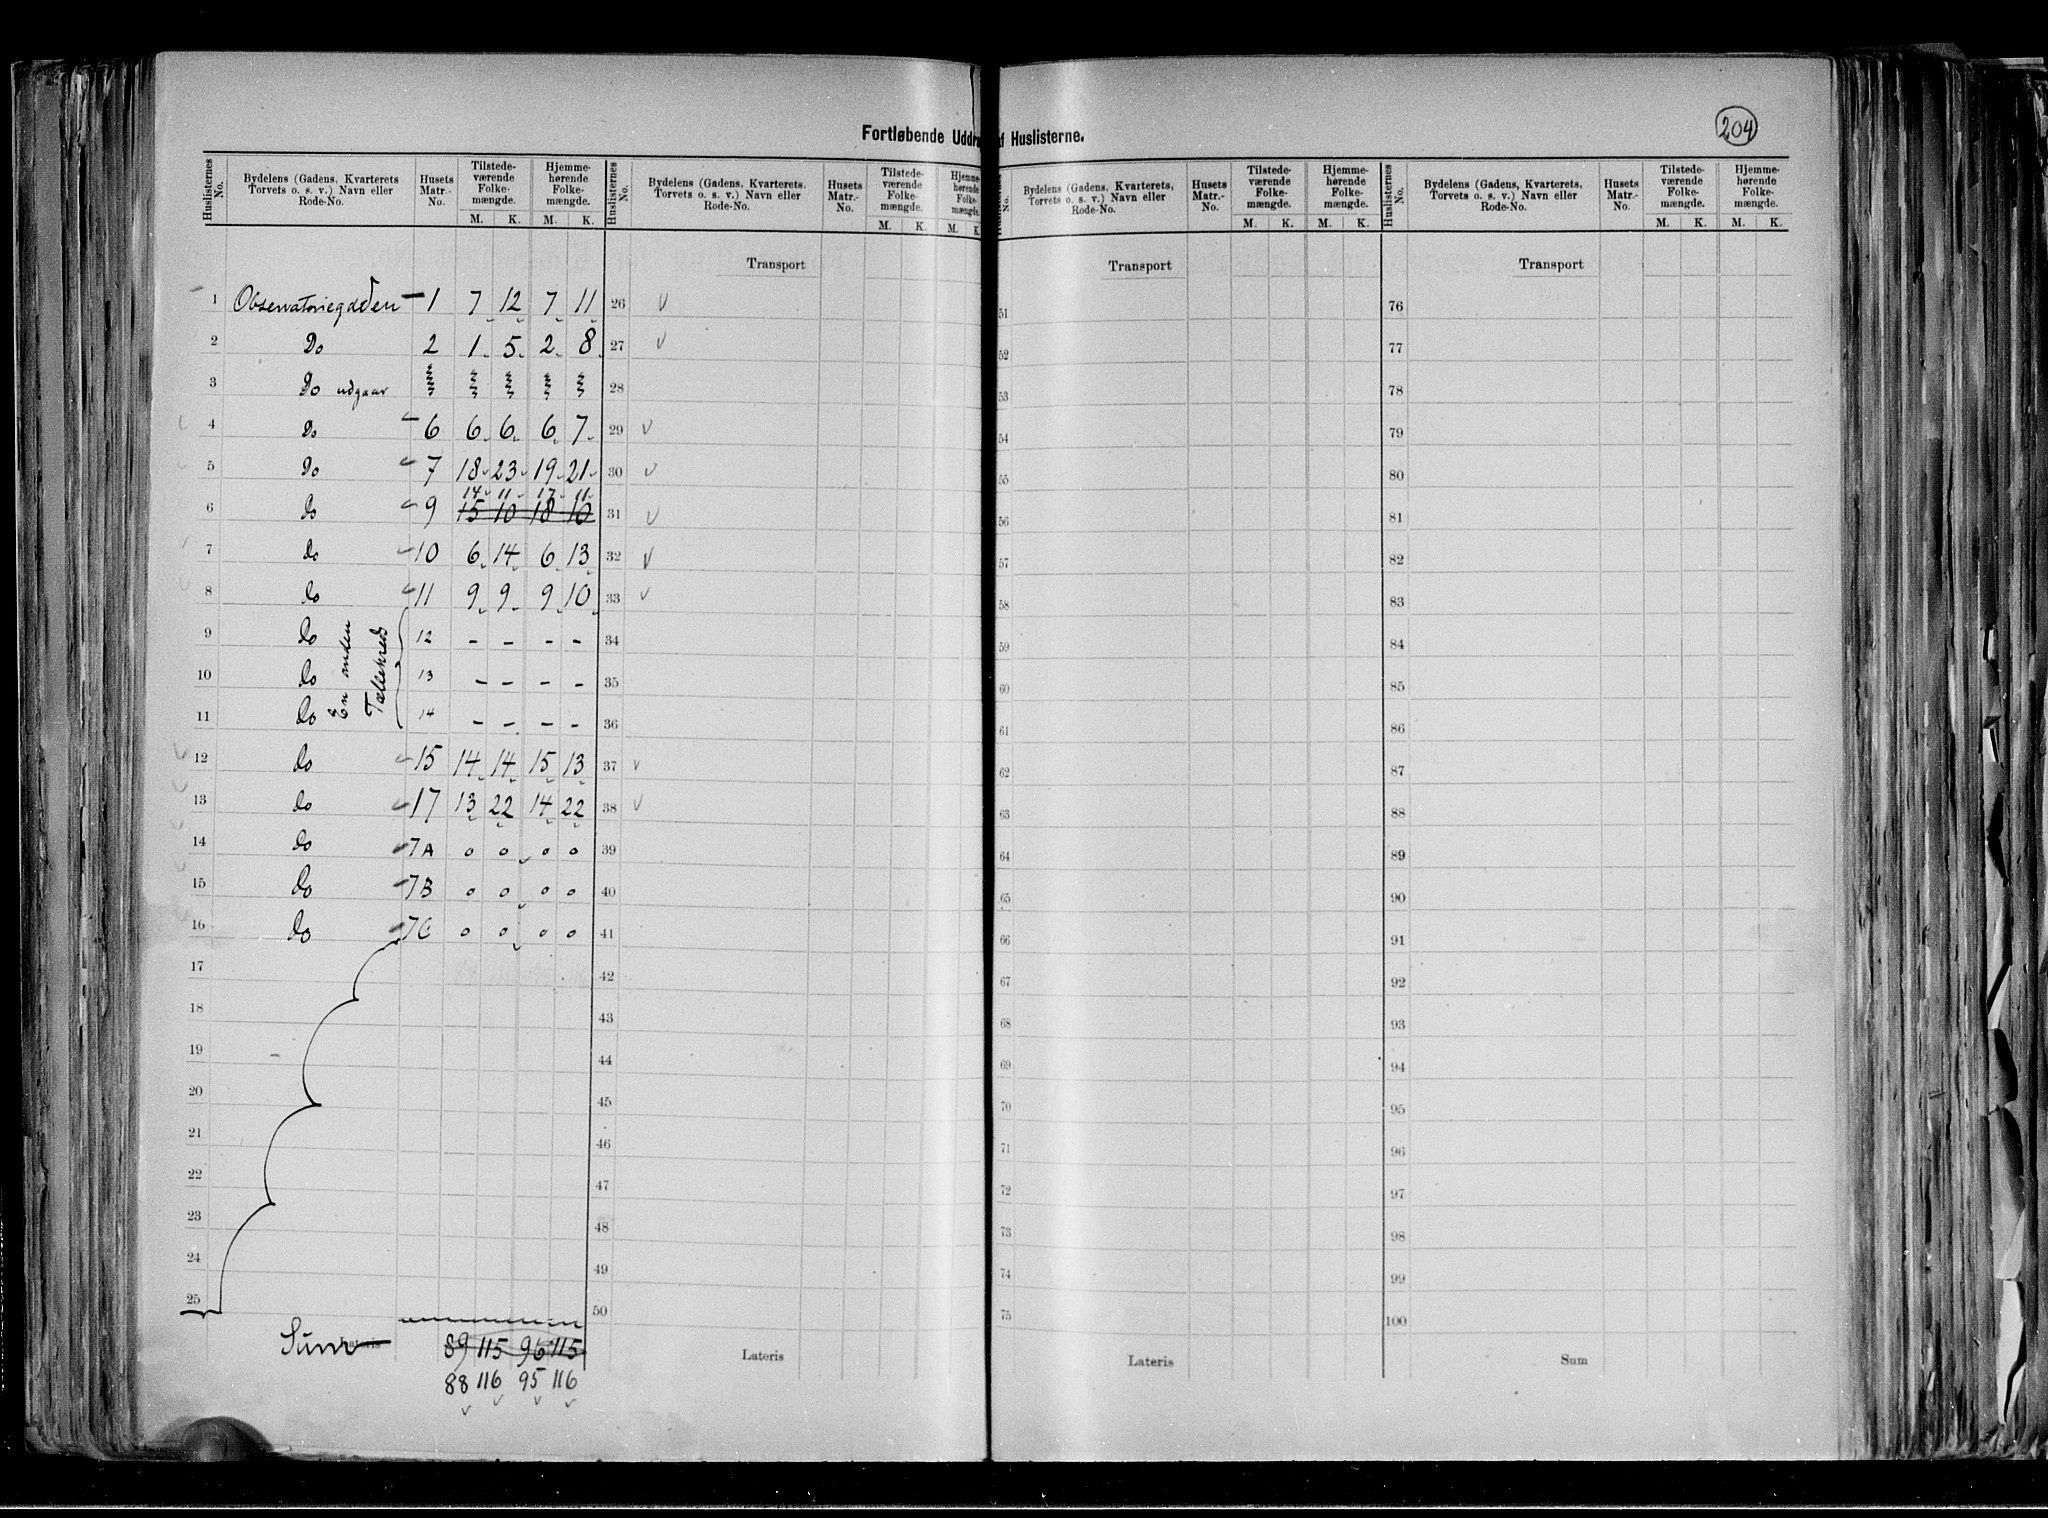 204
Fortløbende Uddra af Huslisterne.
Huslisternes No. | Bydelens (Gadens, Kvarterets Torvets o. s. v.) Navn eller Rode-No. | Husets Matr.-No. | Tilstede-værende Folke-mængde. M. K. | Hjemme-hørende Folke-mængde. M. K.
1 Observatoriegaden 1 7 12 7 11
2 Do 2 1 5 2 8
3 Do udgaar
4 Do 6 6 6 6 7
5 Do 7 18 23 19 21
14 11 17 11
6 Do 9 15 10 18 10
7 Do 10 6 14 6 13
8 Do 11 9 9 9 10
9 Do 12 – – – –
10 Do 13 – – – –
11 Do 14 – – – –
En anden
Tællekreds
12 Do 15 14 14 15 13
13 Do 17 13 22 14 22
14 Do 7A 0 0 0 0
15 Do 7B 0 0 0 0
16 Do 7C 0 0 0 0
17
18
19
20
21
22
23
24
25
Sum Lateris 89 115 96 115
88 116 95 116
Huslisternes No. | Bydelens (Gadens, Kvarterets, Torvets o. s. v.) Navn eller Rode-No. | Husets Matr.-No. | Tilstede-værende Folke-mængde. M. K. | Hjemme-hørende Folke-mængde. M. K.
Transport
26
27
28
29
30
31
32
33
34
35
36
37
38
39
40
41
42
43
44
45
46
47
48
49
50
Lateris
No. | Bydelens (Gadens, Kvarterets, Torvets o. s. v.) Navn eller Rode-No. | Husets Matr.-No. | Tilstede-værende Folke-mængde. M. K. | Hjemme-hørende Folke-mængde. M. K.
Transport
51
52
53
54
55
56
57
58
59
60
61
62
63
64
65
66
67
68
69
70
71
72
73
74
75
Lateris
Huslisternes No. | Bydelens (Gadens, Kvarterets, Torvets o. s. v.) Navn eller Rode-No. | Husets Matr.-No. | Tilstede-værende Folke-mængde. M. K. | Hjemme-hørende Folke-mængde. M. K.
Transport
76
77
78
79
80
81
82
83
84
85
86
87
88
89
90
91
92
93
94
95
96
97
98
99
100
Sum